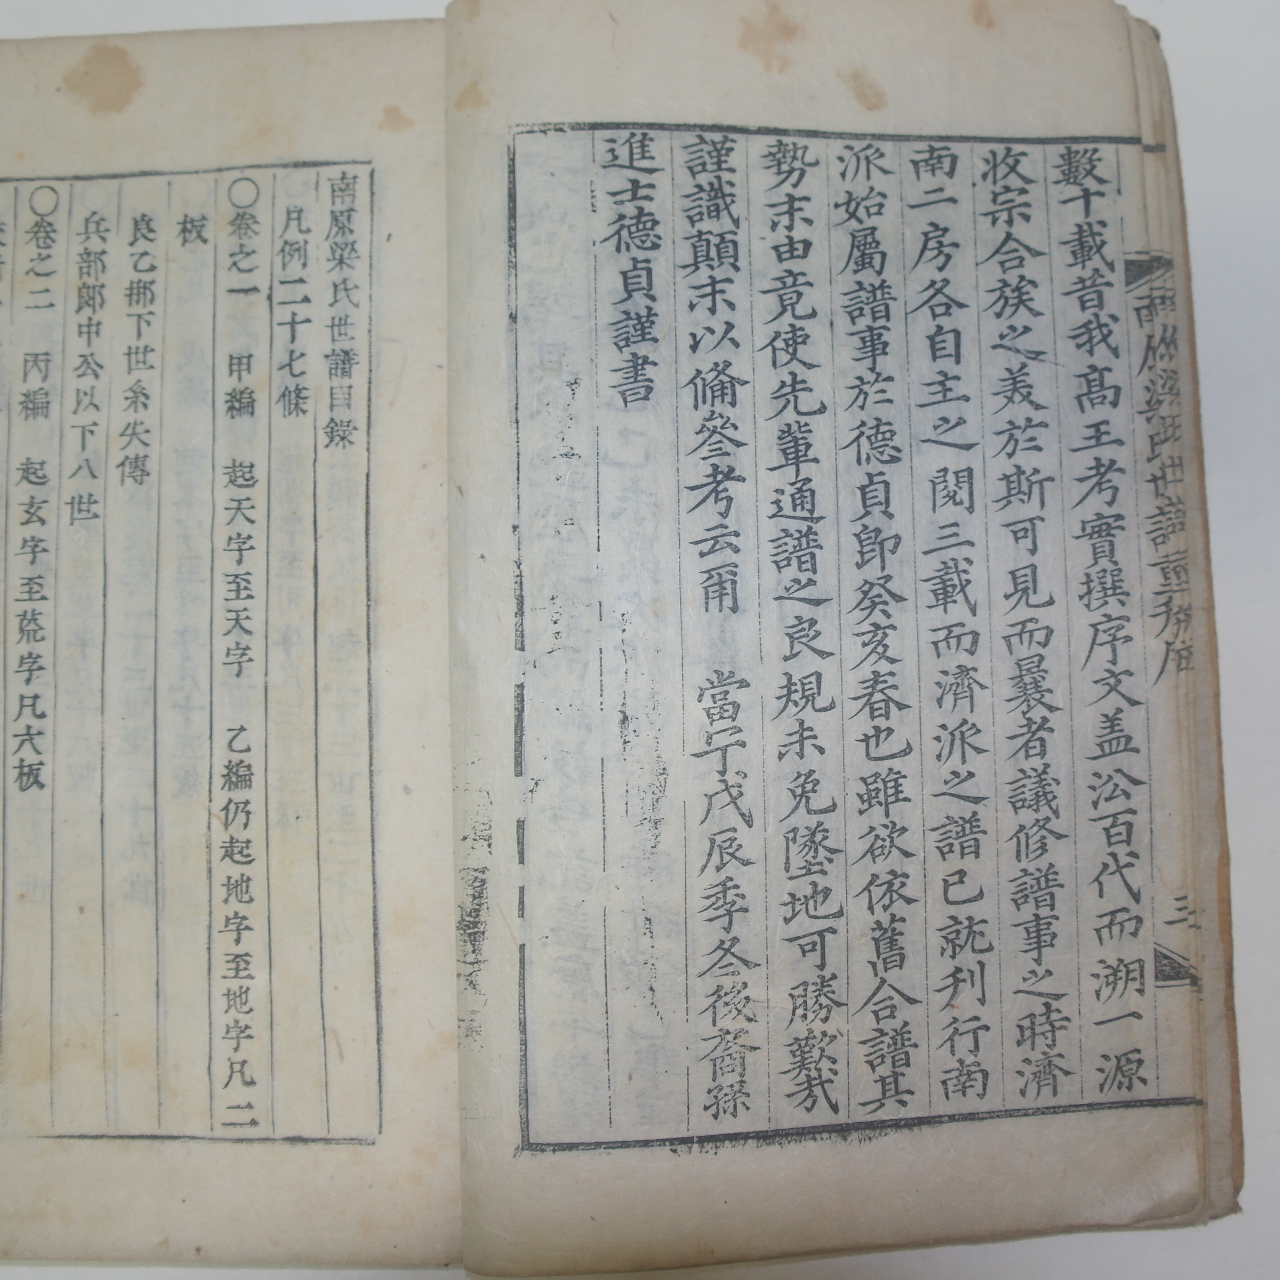 數十載昔我高王考實撰序文盖公百代而溯一源
收宗合族之美於斯可見而曩者議修譜事之時濟
南二房各自主之閱三載而濟派之譜已就刋行南
派始屬譜事於德貞卽癸亥春也雖欲依舊合譜其
勢末由竟使先輩通譜之良規未免墜地可勝歎㢤
謹識顛末以俻叅考云爾 當宁戊辰季冬後裔孫
進士德貞謹書
南原梁氏世譜目錄
凡例二十七條
○卷之一 甲編 起天字至天字 乙編仍起地字至地字凡二
板
良乙那下世系失傳
兵部郎中公以下八世
○卷之二 丙編 起玄字至荒字凡六板